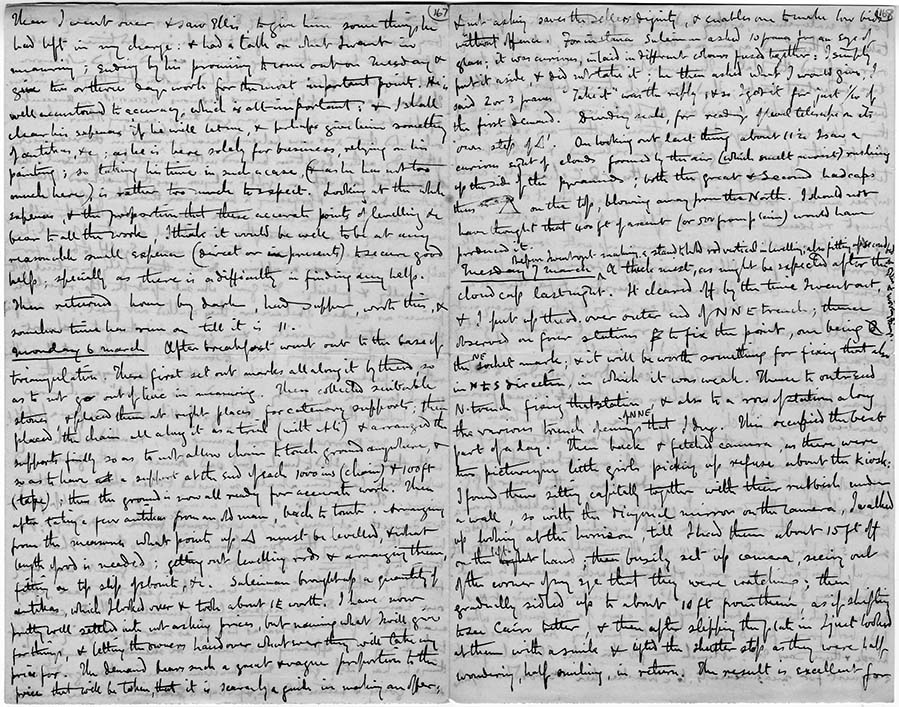 167
Then I went over & saw Ellis, to give him some things he
had left in my charge: & had a talk on what I want in
measuring; ending by his promising to come out on Tuesday &
give two or three days work for the most important point. He is
well accustomed to accuracy, which is all-important; & I shall
clear his expenses if he will let me, & perhaps give him something
of antikas, &c; as he is here solely for business, relying on his
painting; so taking his time in such a case, (& as he has not too
much here) is rather too much to expect. Looking at the whole
expenses, & the proportion that these accurate points of levelling &c
bear to all the work, I think it would be well to be at any
reasonable small expense (direct or in presents) to secure good
help; specially as there is a difficulty in finding any help.
Then returned home by dark, had supper, wrote this, &
somehow time has run on till it is 11.
Monday 6 March After breakfast went out to the base of
triangulation. There first set out marks all along it by theod, so
as to not go out of line in measuring. Then collected suitable
stones & placed them at right places for catenary supports; then
placed the chain all along it as a trial (with Ali) & arranged the
supports finally so as to not allow chain to touch ground anywhere, &
so as to have a support at the end of each 1000 ins (chain) & 100 ft
(tape); thus the ground is now all ready for accurate work. Then
after taking a few antikas from an old man, back to tomb. Arranging
from the measures what points up Δ must be levelled, & what
length of rod is needed; getting out levelling rods & arranging them,
fitting on tip slip &c. Suleiman brought up a quantity of
antikas, which I looked over & took about 1£ worth. I have now
pretty well settled into not asking prices, but naming what I will give
for things, & letting the owners hand over what ever they will take my
price for. The demand bears such a great & vague proportion to the
price that will be taken, that it is scarcely a guide in making an offer;
168
& not asking saves the seller's dignity, & enables one to make low bids
without offence. For instance Suleiman asked 10 francs for an eye of
glass; it was curious, inlaid in different colours fused together: I simply
put it aside, & did not take it; he then asked what I would give, I
said 2 or 3 francs "Take it" was the reply, & so I got it for just 1/4 of
the first demand. Dividing scale, for reading of level telescope on its
own stop of Δ'. On looking out last thing about 11½ I saw a
curious sight of clouds formed by the air (which smelt moist) rushing
up the side of the pyramids; both the great & second had caps
thus Δ on the top, blowing away from the North. I should not
have thought that 400 ft of ascent (or 500 from plain) would have
produced it.
Tuesday 7 March A thick mist, as might be expected after the
cloud caps last night. It cleared off by the time I went out,
& I put up theod over outer end of NNE trench; thence
observed on four stations to fix the point, one being
the NE socket mark; & it will be worth something for fixing that also
in N & S direction, in which it was weak. Thence to outer end
N. trench fixing that station, & also to a row of stations along
the various trench openings NNE that I dug. This occupied the best
part of a day. Then back & fetched camera, as there were
two picturesque little girls picking up refuse about the Kiosk.
I found them sitting capitally together with their rubbish under
a wall, so with the diagonal mirror on the camera, I walked
up looking at the horizon, till I had them about 15 ft off
on the right hand; then busily set up camera, seeing out
of the corner of my eye that they were watching; then
gradually sidled up to about 10 ft from them, as if shifting
to see Cairo better, & then after slipping the plate in I just looked
at them with a smile & lifted the shutter stop as they were half
wondering, half smiling, in return. The result is excellent for